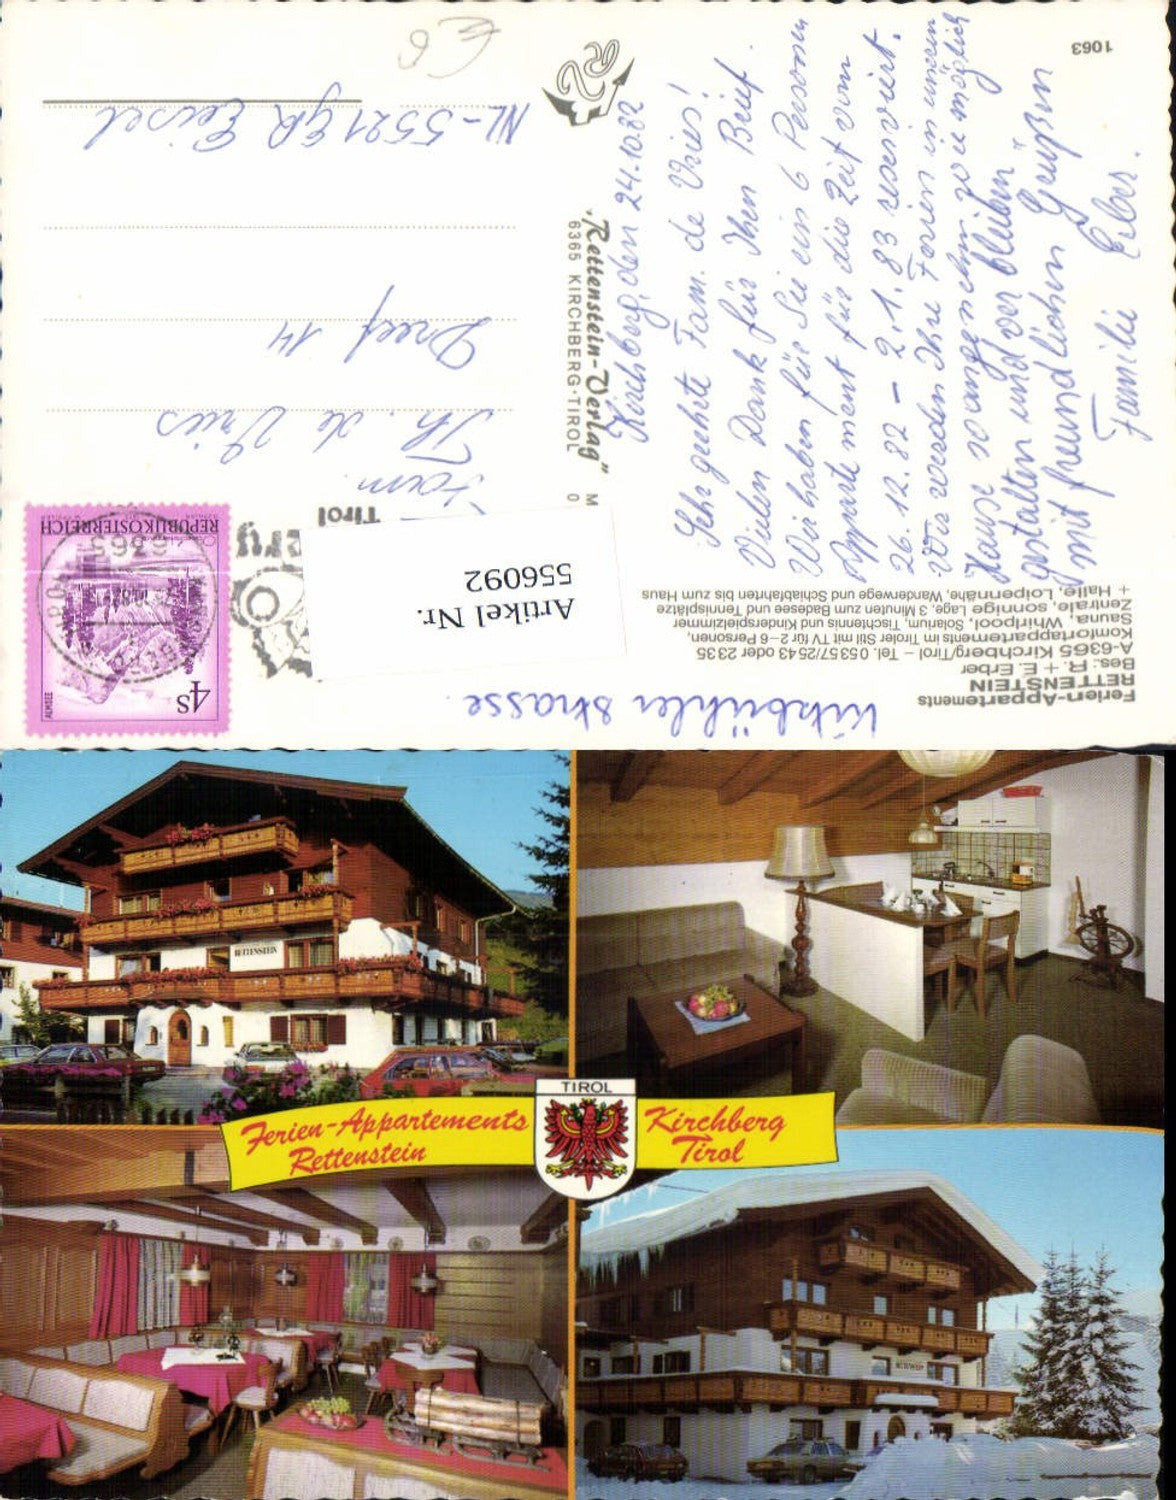 Ferien-Appartements
RETTENSTEIN
Bes.: R. + E. Erber
A-6365 Kirchberg/Tirol – Tel. 05357/2543 oder 2335
Komfortappartements im Tiroler Stil mit TV für 2–6 Personen,
Sauna, Whirlpool, Solarium, Tischtennis und Kinderspielzimmer
Zentrale, sonnige Lage, 3 Minuten zum Badesee und Tennisplätze
+ Halle, Loipennähe, Wanderwege und Schiabfahrten bis zum Haus
Kitzbühler Strasse
Kirchberg, den 24.10.82
Sehr geehrte Fam. de Vries!
Vielen Dank für Ihren Brief.
Wir haben für Sie ein 6 Personen
Appartement für die Zeit vom
26.12.82 – 2.1.83 reserviert.
Wir werden Ihre Ferien in unseren
Hause so angenehm wie möglich
gestalten und ver bleiben
mit freundlichen Grüßen
Familie Erber.
1063
"Rettenstein-Verlag"
6365 KIRCHBERG-TIROL
Artikel Nr.
556092
Tirol
REPUBLIK ÖSTERREICH
4S
ALMSEE
6365
Fam.
Th. de Vries
Dreef 14
NL-5521 GR Eersel
€6
RETTENSTEIN
TIROL
Ferien-Appartements
Rettenstein
Kirchberg
Tirol